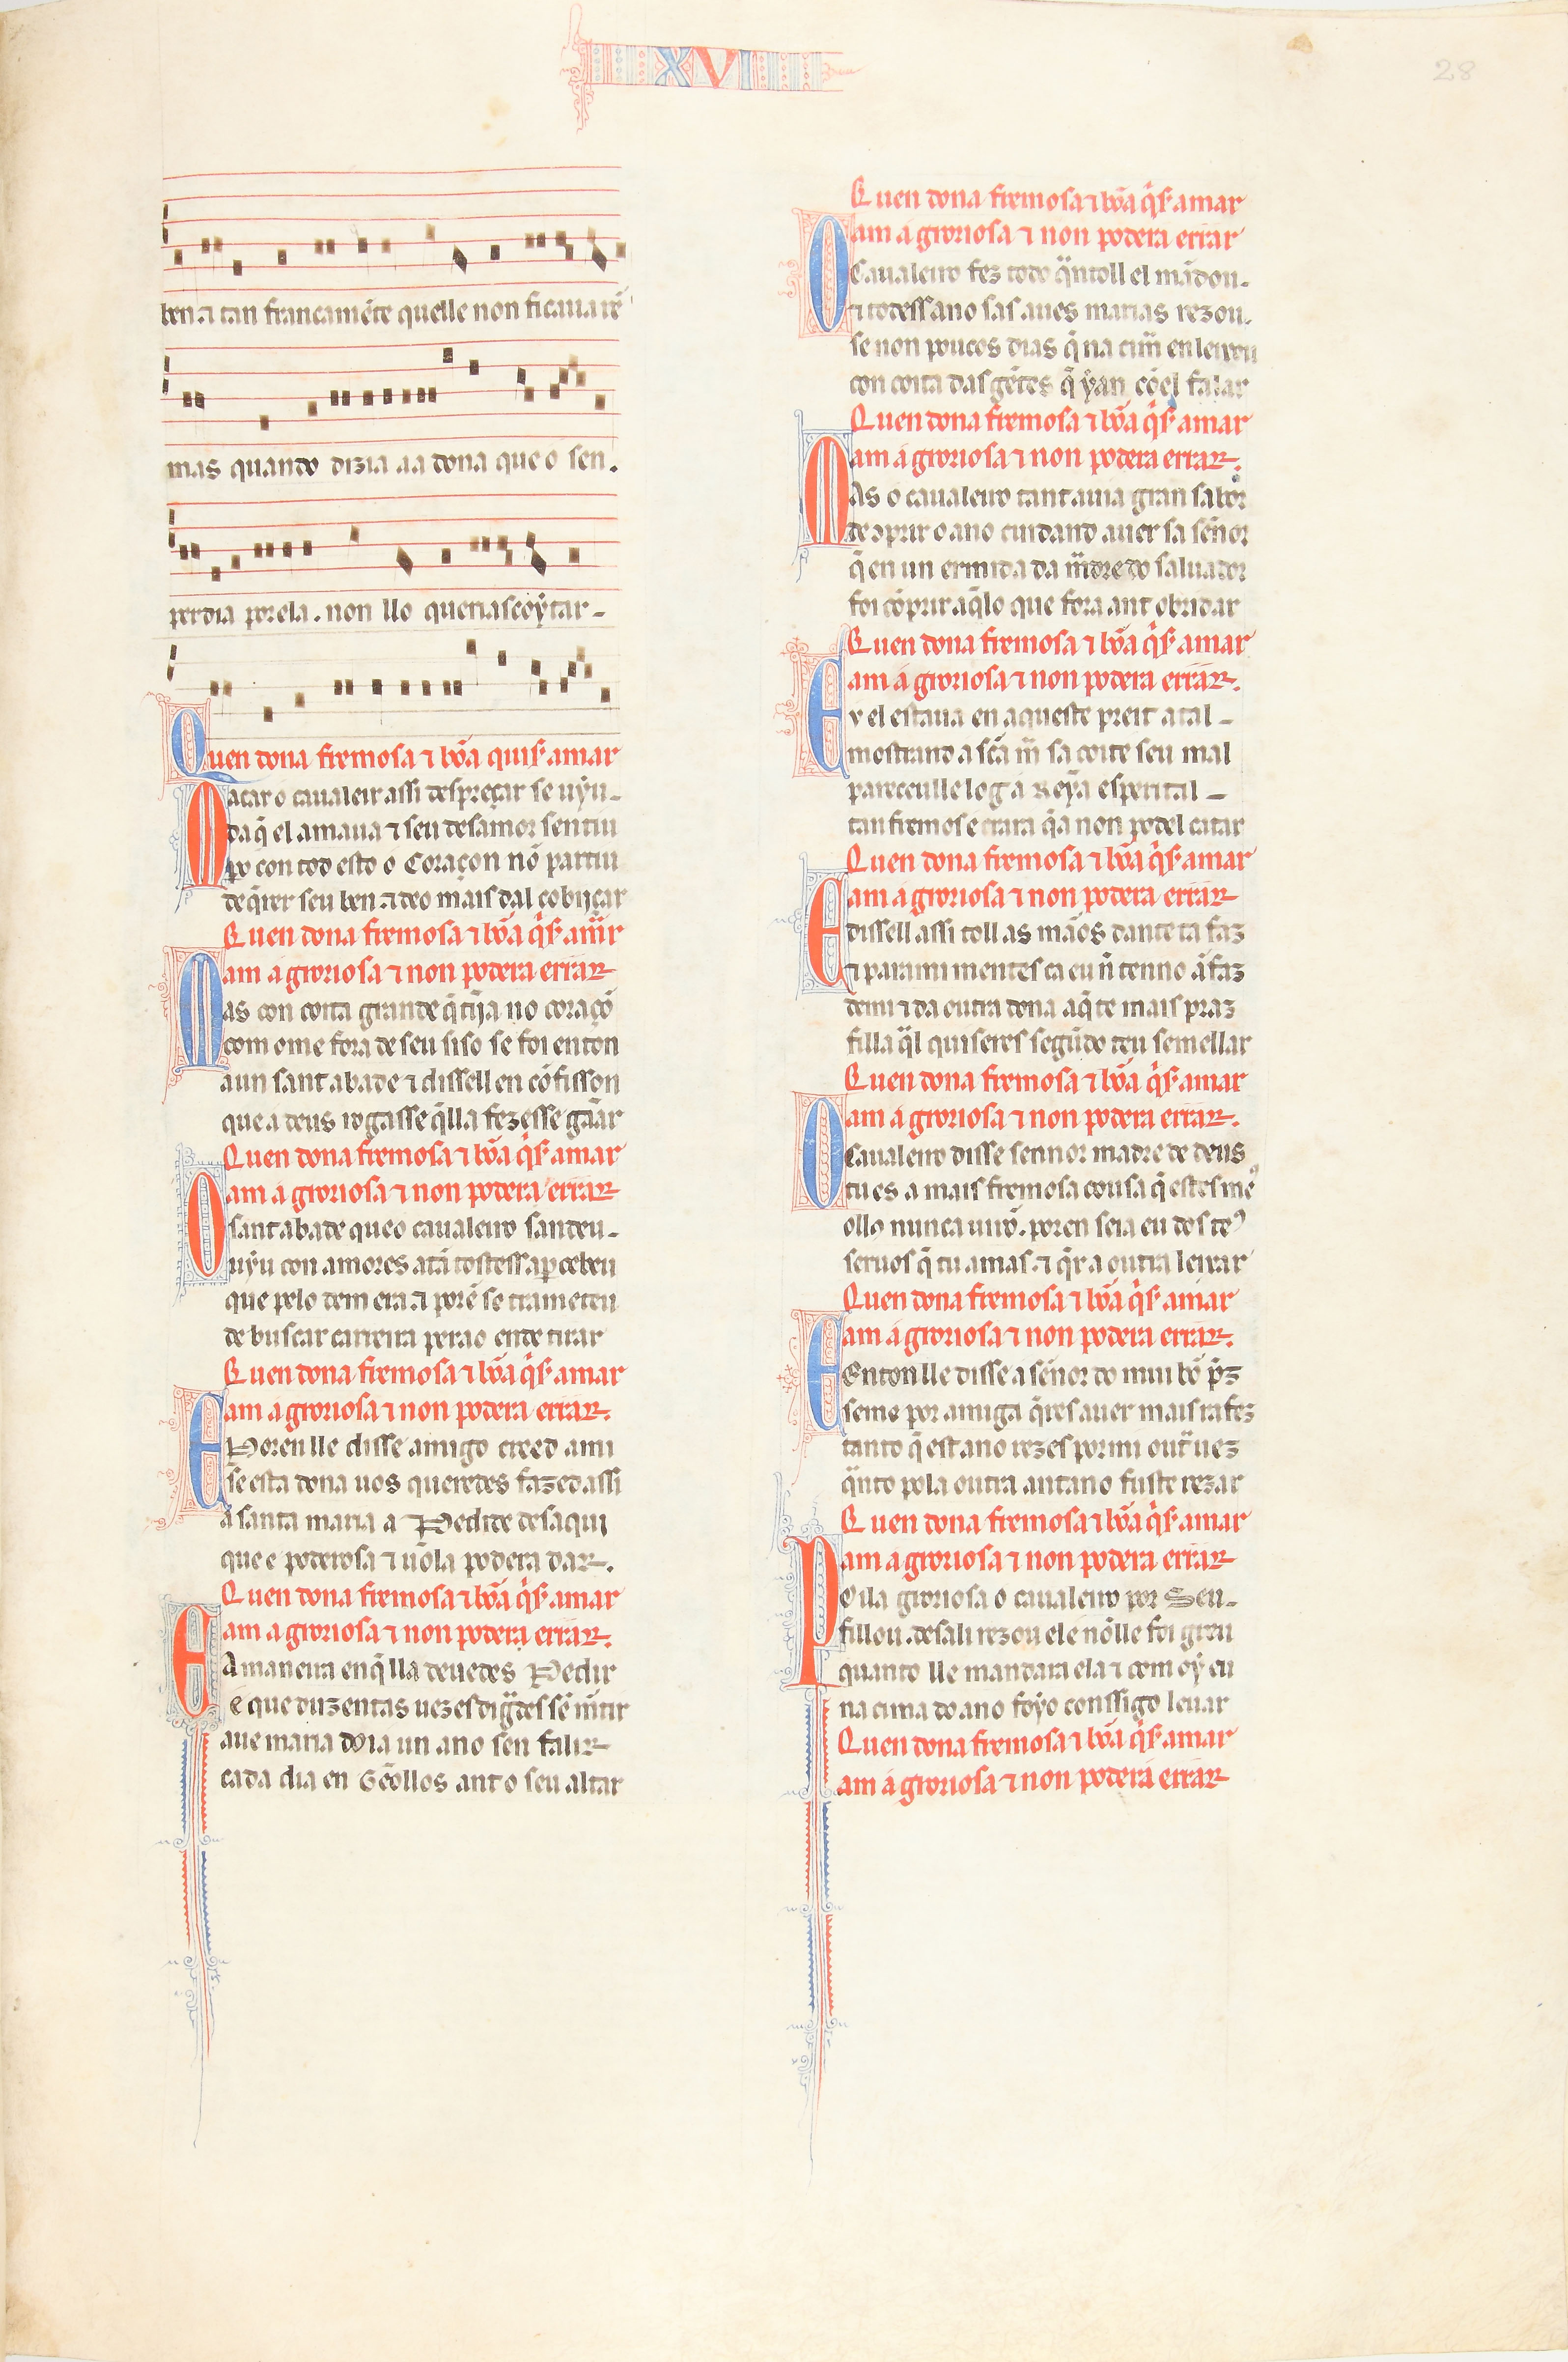 XVI
28
ben ⁊ tan francamẽte quelle non ficaua rẽ
mas quando dizia aa dona que o sen.
perdia por ela. non llo queria scoỹtar
Quen dona fremosa ⁊ bõa quis amar
Macar o caualeir assi despreçar se uỹu
da q̃ el amaua ⁊ seu desamor sentiu
ꝑo con tod esto o Coraçon nõ partiu
de q̃rer seu ben ⁊ deo mais dal cobijçar
Quen dona fremosa ⁊ bõa q̇s amar
am a groriosa ⁊ non podera errar
Mas con coita grande q̃ tijña no coraçõ
com ome fora de seu siso se foi enton
a un sant abade ⁊ dissell en cõfisson
que a deus rogasse q̃lla fezesse gãar
Quen dona fremosa ⁊ bõa q̇s amar
am a groriosa ⁊ non podera errar
O sant abade que o caualeiro sandeu
uỹu con amores atã tostess aꝑcebeu
que pelo dem era ⁊ porẽ se trameteu
de buscar carreira pera o ende tirar
Quen dona fremosa ⁊ bõa q̇s amar
am a groriosa ⁊ non podera errar.
E Poren lle disse amigo creed a mi
se esta dona uos queredes fazed assi
a santa maria a Pedide des aqui
que e poderosa ⁊ uola podera dar.
Quen dona fremosa ⁊ bõa q̇s amar
am a groriosa ⁊ non podera errar.
E A maneira en q̃ lla deuedes Pedir
e que duzentas uezes digades sẽ mẽtir
aue maria doia un ano sen falir
cada dia en Gẽollos ant o seu altar
Quen dona fremosa ⁊ bõa q̇s amar
am a groriosa ⁊ non podera errar
O Caualeiro fez todo quãto ll el mãdou.
⁊ todess ano sas aues marias rezou.
se non poucos dias q̃ na cima en leixou
con coita das gẽtes q̃ ỹan cõ el falar
Quen dona fremosa ⁊ bõa q̇s amar
am a groriosa ⁊ non podera errar.
Mas o caualeiro tant auia gran sabor
de ꝯprir o ano cuidando auer sa señor
q̃ en un ermida da m̃dre do saluador
foi cõprir aq̃lo que fora ant obridar
Quen dona fremosa ⁊ bõa q̇s amar
am a groriosa ⁊ non podera errar.
E v el estaua en aqueste preit atal
mostrando a scã m̃ sa coite seu mal
pareceulle log a Reỹa esperital
tan fremos e crara q̃ a non podel catar
Quen dona fremosa ⁊ bõa q̇s amar
am a groriosa ⁊ non podera errar
E dissell assi toll as mãos dante ta faz
⁊ para mi mentes ca eu ñ tenno ãfaz
de mi ⁊ da outra dona a q̃ te mais praz
filla q̃l quiseres segũdo teu semellar
Quen dona fremosa ⁊ bõa q̇s amar
am a groriosa ⁊ non podera errar.
O Caualeiro disse sennor madre de deus
tu es a mais fremosa cousa q̃ estes me⁹
ollos nunca uirõ. poren seia eu dos te⁹
seruos q̃ tu amas ⁊ q̃r a outra leixar
Quen dona fremosa ⁊ bõa q̇s amar
am a groriosa ⁊ non podera errar.
E Enton lle disse a señor do mui bõ p̃z
se me por amiga q̃res auer mais rafez
tanto q̃ est ano rezes por mi outr̃ uez
quãto pola outra antano fuste rezar
Quen dona fremosa ⁊ bõa q̇s amar
am a groriosa ⁊ non podera errar
Poila groriosa o caualeiro por Seu
fillou. des ali rezou el e nõ lle foi greu
quanto lle mandara ela ⁊ com oỹ eu
na cima do ano foỹo conssigo leuar
Quen dona fremosa ⁊ bõa q̇s amar
am a groriosa ⁊ non podera errar